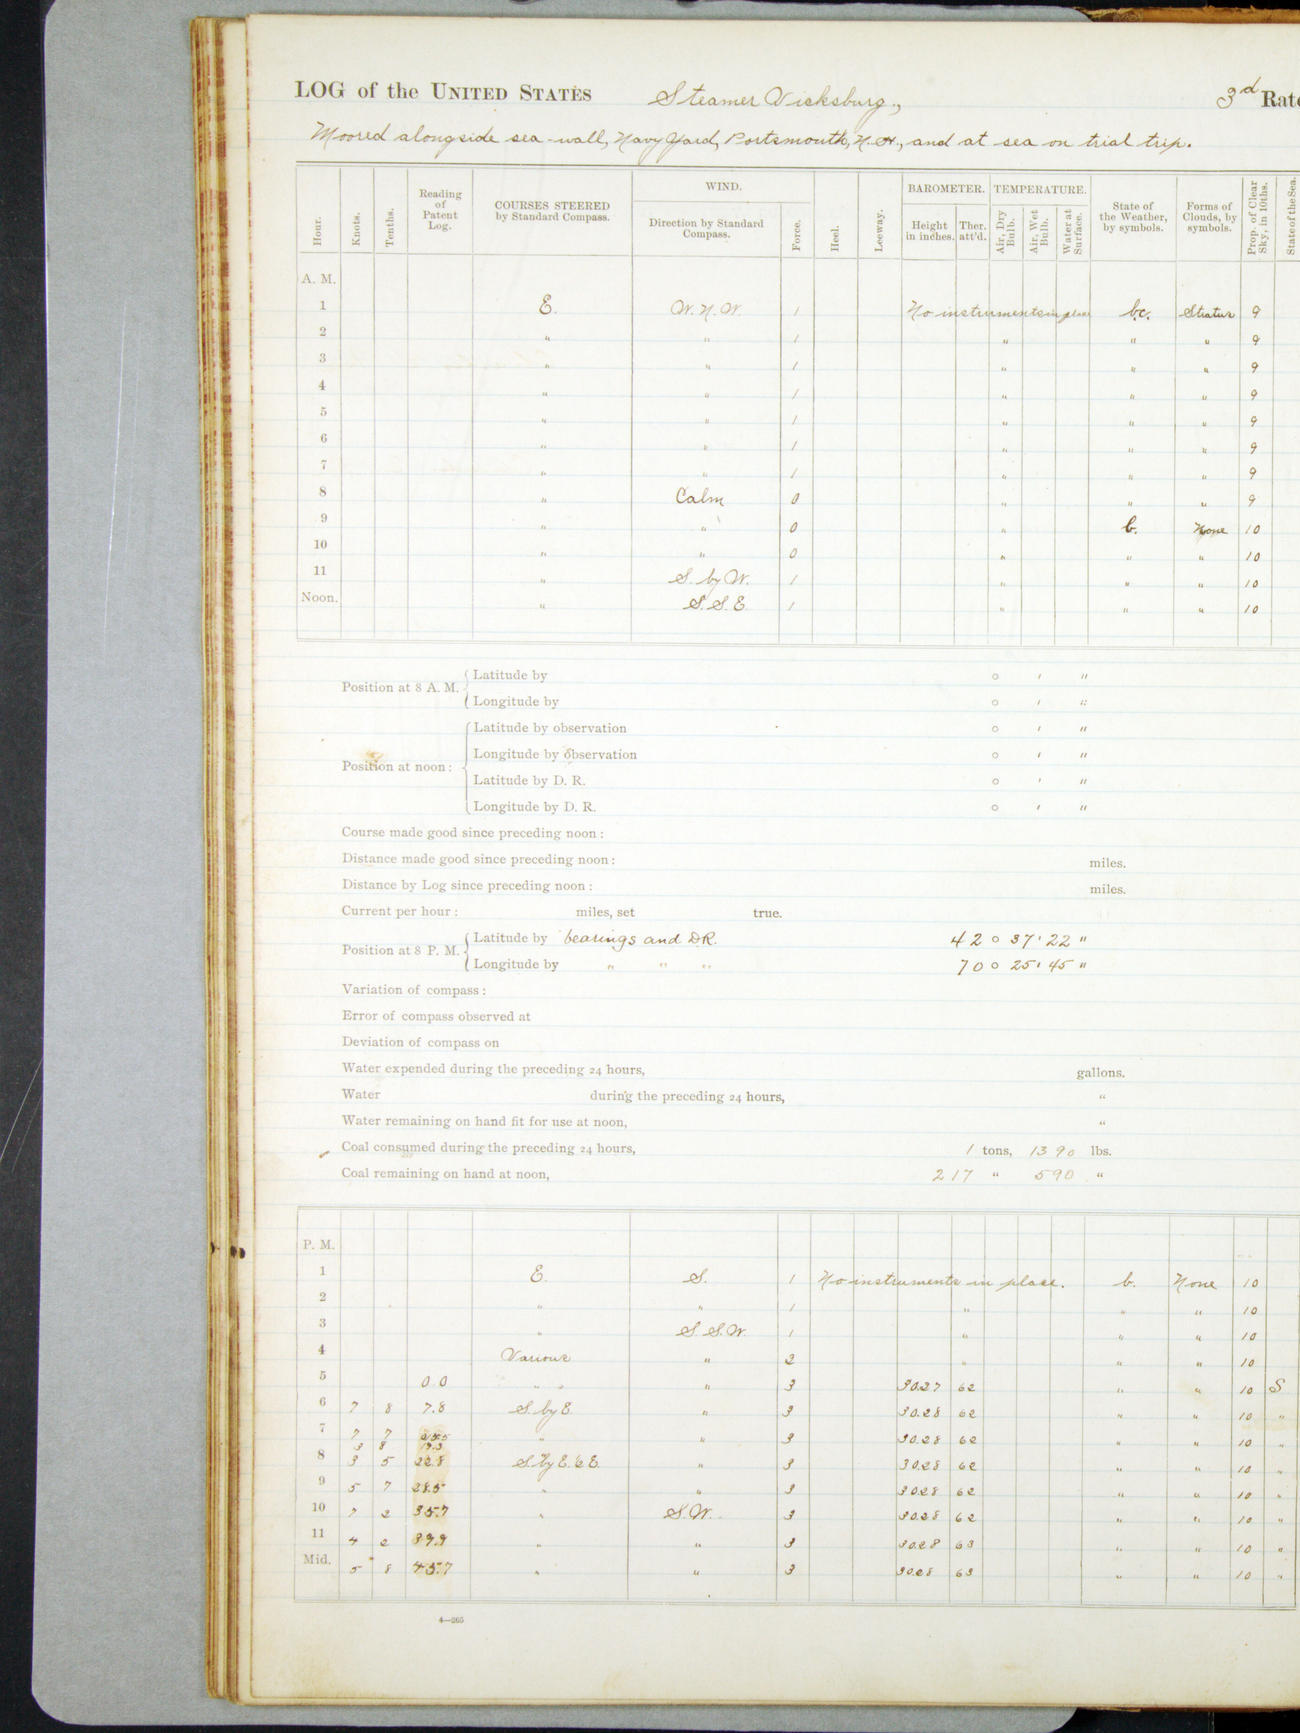 LOG of the UNITED STATES Steamer Vicksburg., 3d Rate
Moored alongside sea-wall, Navy Yard, Portsmouth, N.H., and at sea on trial trip.
Hour. Knots. Tenths. Reading of Patent Log. COURSES STEERED by Standard Compass. WIND. Direction by Standard Compass. Force. Heel. Leeway. BAROMETER. Height in inches. Ther. att'd. TEMPERATURE. Air, Dry Bulb. Air, Wet Bulb. Water at Surface. State of the Weather, by symbols. Forms of Clouds, by symbols. Prop. of Clear Sky, in 10ths. State of the Sea.
A. M.
1 E. W.N.W. 1 No instruments in place bc. Stratus 9
2 " " 1 " " " 9
3 " " 1 " " " 9
4 " " 1 " " " 9
5 " " 1 " " " 9
6 " " 1 " " " 9
7 " " 1 " " " 9
8 " Calm 0 " " " 9
9 " " 0 " b. None 10
10 " " 0 " " " 10
11 " S. by W. 1 " " " 10
Noon. " S.S.E. 1 " " " 10
Position at 8 A. M. Latitude by ° ' "
Longitude by ° ' "
Position at noon: Latitude by observation ° ' "
Longitude by observation ° ' "
Latitude by D. R. ° ' "
Longitude by D. R. ° ' "
Course made good since preceding noon:
Distance made good since preceding noon: miles.
Distance by Log since preceding noon: miles.
Current per hour: miles, set true.
Position at 8 P. M. Latitude by bearings and D.R. 42 ° 37 ' 22 "
Longitude by " " " 70 ° 25 ' 45 "
Variation of compass:
Error of compass observed at
Deviation of compass on
Water expended during the preceding 24 hours, gallons.
Water during the preceding 24 hours, "
Water remaining on hand fit for use at noon, "
Coal consumed during the preceding 24 hours, 1 tons, 1390 lbs.
Coal remaining on hand at noon, 217 " 590 "
P. M.
1 E. S. 1 No instruments in place. b. None 10
2 " " 1 " " " 10
3 " S.S.W. 1 " " " 10
4 Various " 2 " " " 10
5 0.0 " " " 3 30.27 62 " " 10 S
6 7 8 7.8 S. by E. " 3 30.28 62 " " 10 "
7 7 7 15.5 " " 3 30.28 62 " " 10 "
3 8 19.3
8 3 5 22.8 S. by E. ½ E. " 3 30.28 62 " " 10 "
9 5 7 28.5 " " 3 30.28 62 " " 10 "
10 7 2 35.7 " S.W. 3 30.28 62 " " 10 "
11 4 2 39.9 " " 3 30.28 63 " " 10 "
Mid. 5 8 45.7 " " 3 30.28 63 " " 10 "
4—265